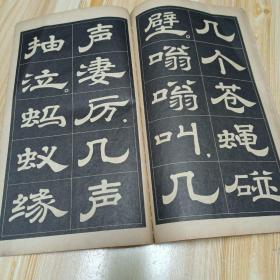 几个苍蝇碰
壁。嗡嗡叫，几
声凄厉，几声
抽泣。蚂蚁缘